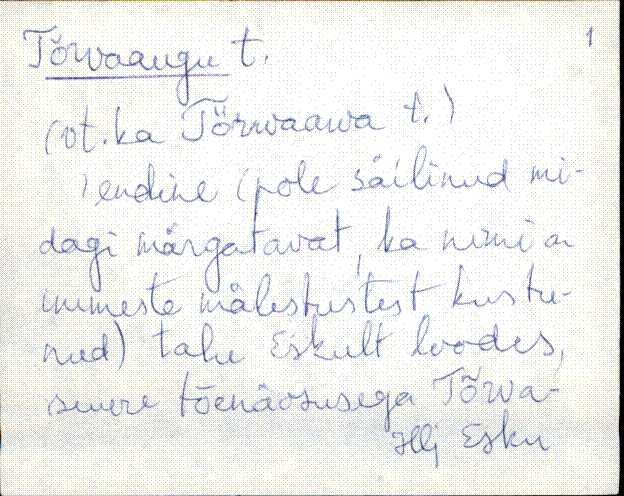 Tõrvaaugu t. 1
(vt. ka Törwaawa t.)
endine (pole säilinud mi-
dagi märgatavat, ka nimi on
inimeste mälestustest kustu-
nud) talu Eskult loodes,
suure tõenäosusega Tõrva-
Hlj Esku